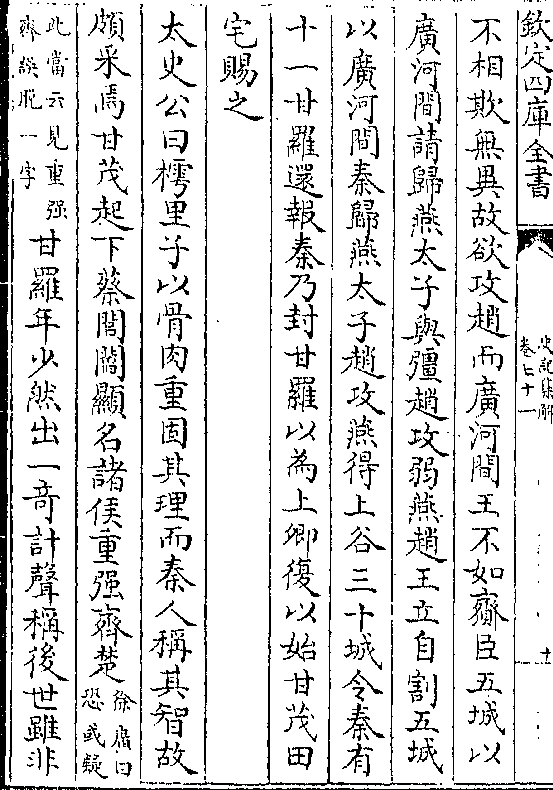 欽定四庫全書
史記集解
卷七十一
不相欺無異故欲攻趙而廣河間王不如齎臣五城以
廣河間請歸燕太子與彊趙攻弱燕趙王立自割五城
以廣河間秦歸燕太子趙攻燕得上谷三十城令秦有
十一甘羅還報秦乃封甘羅以為上卿復以始甘茂田
宅賜之
太史公曰樗里子以骨肉重固其理而秦人稱其智故
頗采焉甘茂起下蔡閭閻顯名諸侯重强齊楚
徐廣曰
恐或疑
此當云見重强
齊誤脫一字
甘羅年少然出一奇計聲稱後世雖非